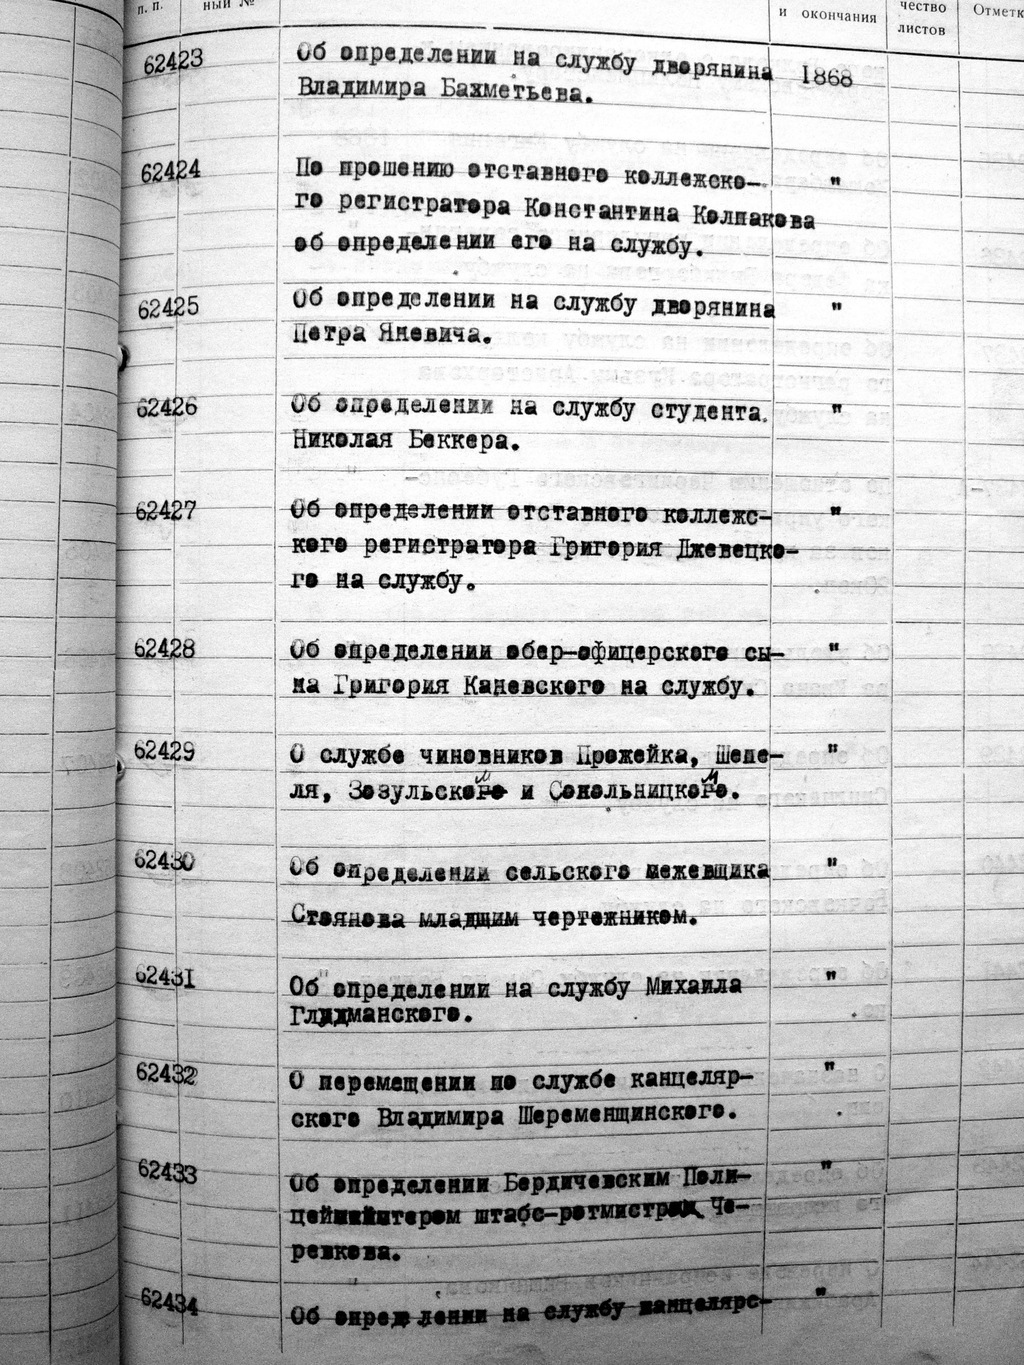 п. п.
ный №
и окончания
чество
листов
Отметк
62423
Об определении на службу дворянина 1868
Владимира Бахметьева.
62424
По прошению отставного коллежско- "
го регистратора Константина Колпакова
об определении его на службу.
62425
Об определении на службу дворянина "
Петра Яневича.
62426
Об определении на службу студента "
Николая Беккера.
62427
Об определении отставного коллежс- "
кого регистратора Григория Джевецко-
го на службу.
62428
Об определении обер-офицерского сы- "
на Григория Каневского на службу.
62429
О службе чиновников Прожейка, Шепе- "
ля, Зозульского и Сокольницкого.
62430
Об определении сельского межевщика "
Стоянова младшим чертежником.
62431
Об определении на службу Михаила "
62432
О перемещении по службе канцеляр- "
ского Владимира Шеременщинского.
62433
Об определении Бердичевским Поли- "
штабс-ротмистра Че-
ревкова.
62434
Об определении на службу канцелярс- "